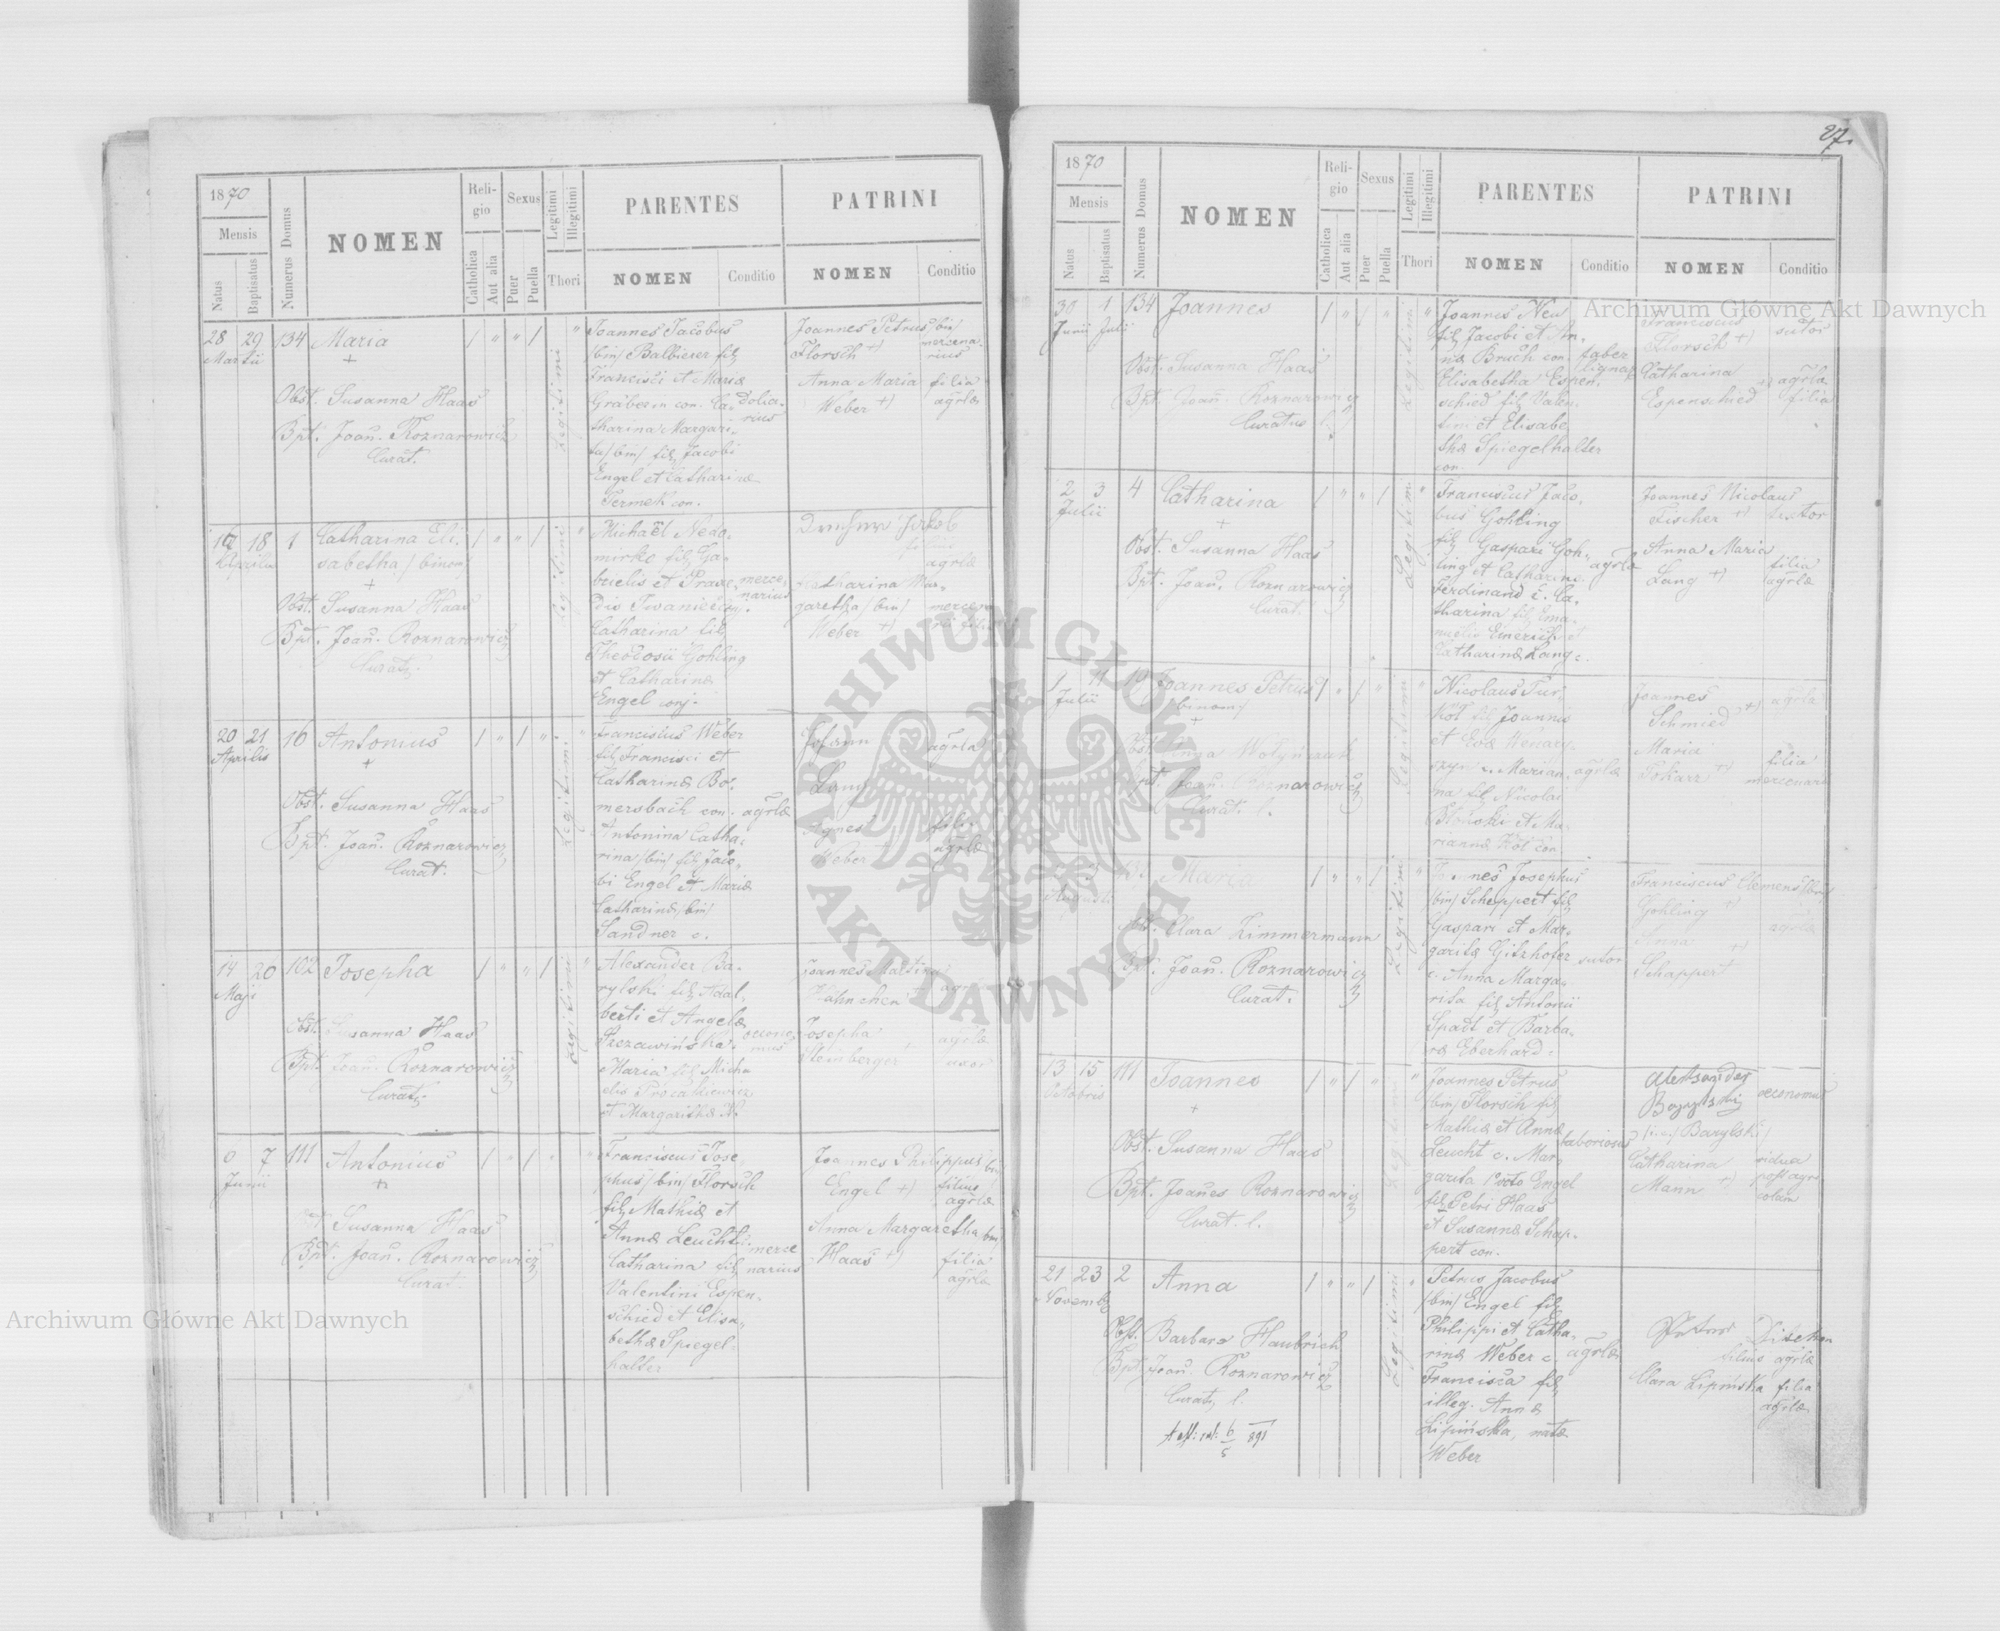 27.
1870
Mensis
Natus
Baptisatus
Numerus Domus
NOMEN
Religio
Catholica
Aut alia
Sexus
Puer
Puella
Legitimi
Illegitimi
Thori
PARENTES
NOMEN
Conditio
PATRINI
NOMEN
Conditio
28 29 134 Maria
Martii
+
Obst. Susanna Haas
Bpt. Joan. Roznarowicz
Curat.
Legitimi
Joannes Jacobus
/bin/ Balbierer fil
Francisci et Mariæ
Gräber in con. Ca-
tharina Margare-
ta /bin/ fil Jacobi
Engel et Catharinæ
Permek con.
doliarius
Joannes Petrus /bin/
Florsch +)
mercenarius
Anna Maria
Weber +)
filia
agrlæ
18 1 Catharina Eli-
Aprilis
sabetha /binom/
+
Obst. Susanna Haas
Bpt. Joan. Roznarowicz
Curat.
Legitimi
Michaël Nedo-
mirke fil Ga-
brielis et Praxe-
dis Iwanicka
Catharina fil
Theodosii Gohling
et Catharinæ
Engel conj.
mercenarius
filius
agrlæ
Catharina Mar-
garetha /bin/
Weber +)
20 21 16 Antonius
Aprilis
+
Obst. Susanna Haas
Bpt. Joan. Roznarowicz
Curat.
Legitimi
Franciscus Weber
fil Francisci et
Catharinæ Bo-
mersbach con.
Antonina Catha-
rina /bin/ fil Jaco-
bi Engel et Mariæ
Catharinæ /bin/
Sandner c.
agrlæ
Johann
Lang
agrla
Agnes
Weber
agrlæ
14 20 102 Josepha
Maji
Obst. Susanna Haas
Bpt. Joan. Roznarowicz
Curat.
Legitimi
Alexander Ba-
rylski fil Adal-
berti et Angelæ
Maria fil Micha
elis
et Margarithæ N.
Joannes Martinus
Hähnchen
Josepha
Steinberger
agrlæ
uxor
7 111 Antonius
Junii
+
Susanna Haas
Bpt. Joan. Roznarowicz
Curat.
Franciscus Jose-
phus /bin/ Florsch
fil Mathiæ et
Annæ Leucht c.
Catharina fil
Valentini Espen-
schied et Elisa-
bethæ Spiegel-
halter
mercenarius
Joannes Philippus /bin/
Engel +)
filius
agrlæ
Anna Margaretha /bin/
Haas +)
filia
agrlæ
1870
Mensis
Natus
Baptisatus
Numerus Domus
NOMEN
Religio
Catholica
Aut alia
Sexus
Puer
Puella
Legitimi
Illegitimi
Thori
PARENTES
NOMEN
Conditio
PATRINI
NOMEN
Conditio
30 1 134 Joannes
Junii Julii
Obst. Susanna Haas
Bpt. Joan. Roznarowicz
Curatus l.
Legitimi
Joannes Neu
fil Jacobi et An-
næ Bruch con.
Elisabetha Espen-
schied fil Valen-
tini et Elisabe
thæ Spiegelhalter
con.
faber
lignar
Franciscus
Florsch +)
sutor
Catharina
Espenschied
agrlæ
filia
2 3 4 Catharina
Julii
+
Obst. Susanna Haas
Bpt. Joan. Roznarowicz
Curat.
Legitimi
Franciscus Jaco-
bus Gohling
fil Gaspari Goh-
ling et Catharinæ
Ferdinand c. Ca-
tharina fil Ema-
nuelis Emerich et
Catharinæ Lang c.
agrlæ
Joannes Nicolaus
Fischer +) textor
Anna Maria
Lang +)
filia
agrlæ
Joannes Petrus
Julii
/binom/
+
Bpt. Joan. Roznarowicz
Curat. l.
Legitimi
Nicolaus Tur-
kot fil Joannis
et Evæ
c. Marian-
na fil Nicolai
et Ma-
riannæ Kot con.
agrlæ
Joannes
Schmied +)
agrla
Maria
Tokarz +)
filia
mercenarii
Maria
Augusti
Obst. Clara Zimmermann
Bpt. Joan. Roznarowicz
Curat.
Legitimi
Joannes Josephus
/bin/ Scheppert fil
Gaspari et Mar-
garitæ Gitzhofer
c. Anna Marga-
rita fil Antonii
Spadt et Barba-
ræ Eberhard c.
sutor
Franciscus Clemens /bin/
Gohling +)
agrlæ
Anna
Schappert +)
13 15 111 Joannes
Octobris
+
Obst. Susanna Haas
Bpt. Joanes Roznarowicz
Curat. l.
Legitimi
Joannes Petrus
/bin/ Florsch fil
Mathiæ et Annæ
Leucht c. Mar-
garita 1 voto Engel
fil Petri Haas
et Susannæ Schap-
pert con.
laboriosus
Aleksander
Barylski
oeconomus
/i.e./ Barylski/
Catharina
Mann +)
vidua
post agri
colam
21 23 2 Anna
Novemb
Obst. Barbara Haubrich
Bpt. Joan. Roznarowicz
Curat. l.
Legitimi
Petrus Jacobus
/bin/ Engel fil
Philippi et Catha-
rinæ Weber c.
Francisca fil
illeg. Annæ
Lipińska, natæ
Weber
agrlæ
filius agrlæ
Clara Lipińska filia
agrlæ
Archiwum Główne Akt Dawnych
Archiwum Główne Akt Dawnych
ARCHIWUM GŁÓWNE
AKT DAWNYCH